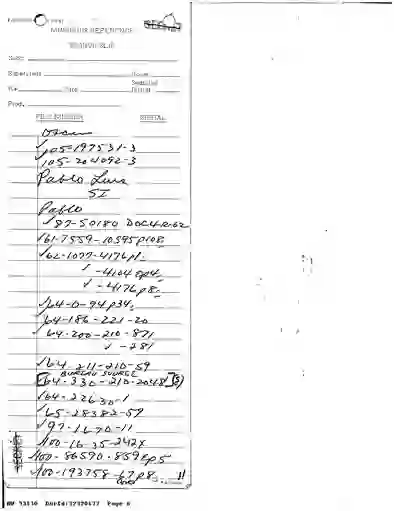 NUMEROUS REFERENCE
SEARCH SLIP
Subj:
Supervisor Room
R# Date
Prod.
FILE NUMBER SERIAL
Oscar
✓105-197531-3
✓105-204092-3
Pablo Luis
SI
Pablo
✓87-50180
✓61-7559-10595p108
✓62-1077-4176p1
✓ -4104 ep4
✓ -4176p8
✓64-0-94p34
✓64-186-221-20
✓64-200-210-871
✓ -281
✓64-211-210-59
BUREAU SOURCE
[64-330-210-2048](S)
✓64-22630-1
✓65-28382-59
✓97-1670-11
✓100-16-35-242X
✓100-86590-859Xp5
✓100-193758-67p8
SECRET
Page 6